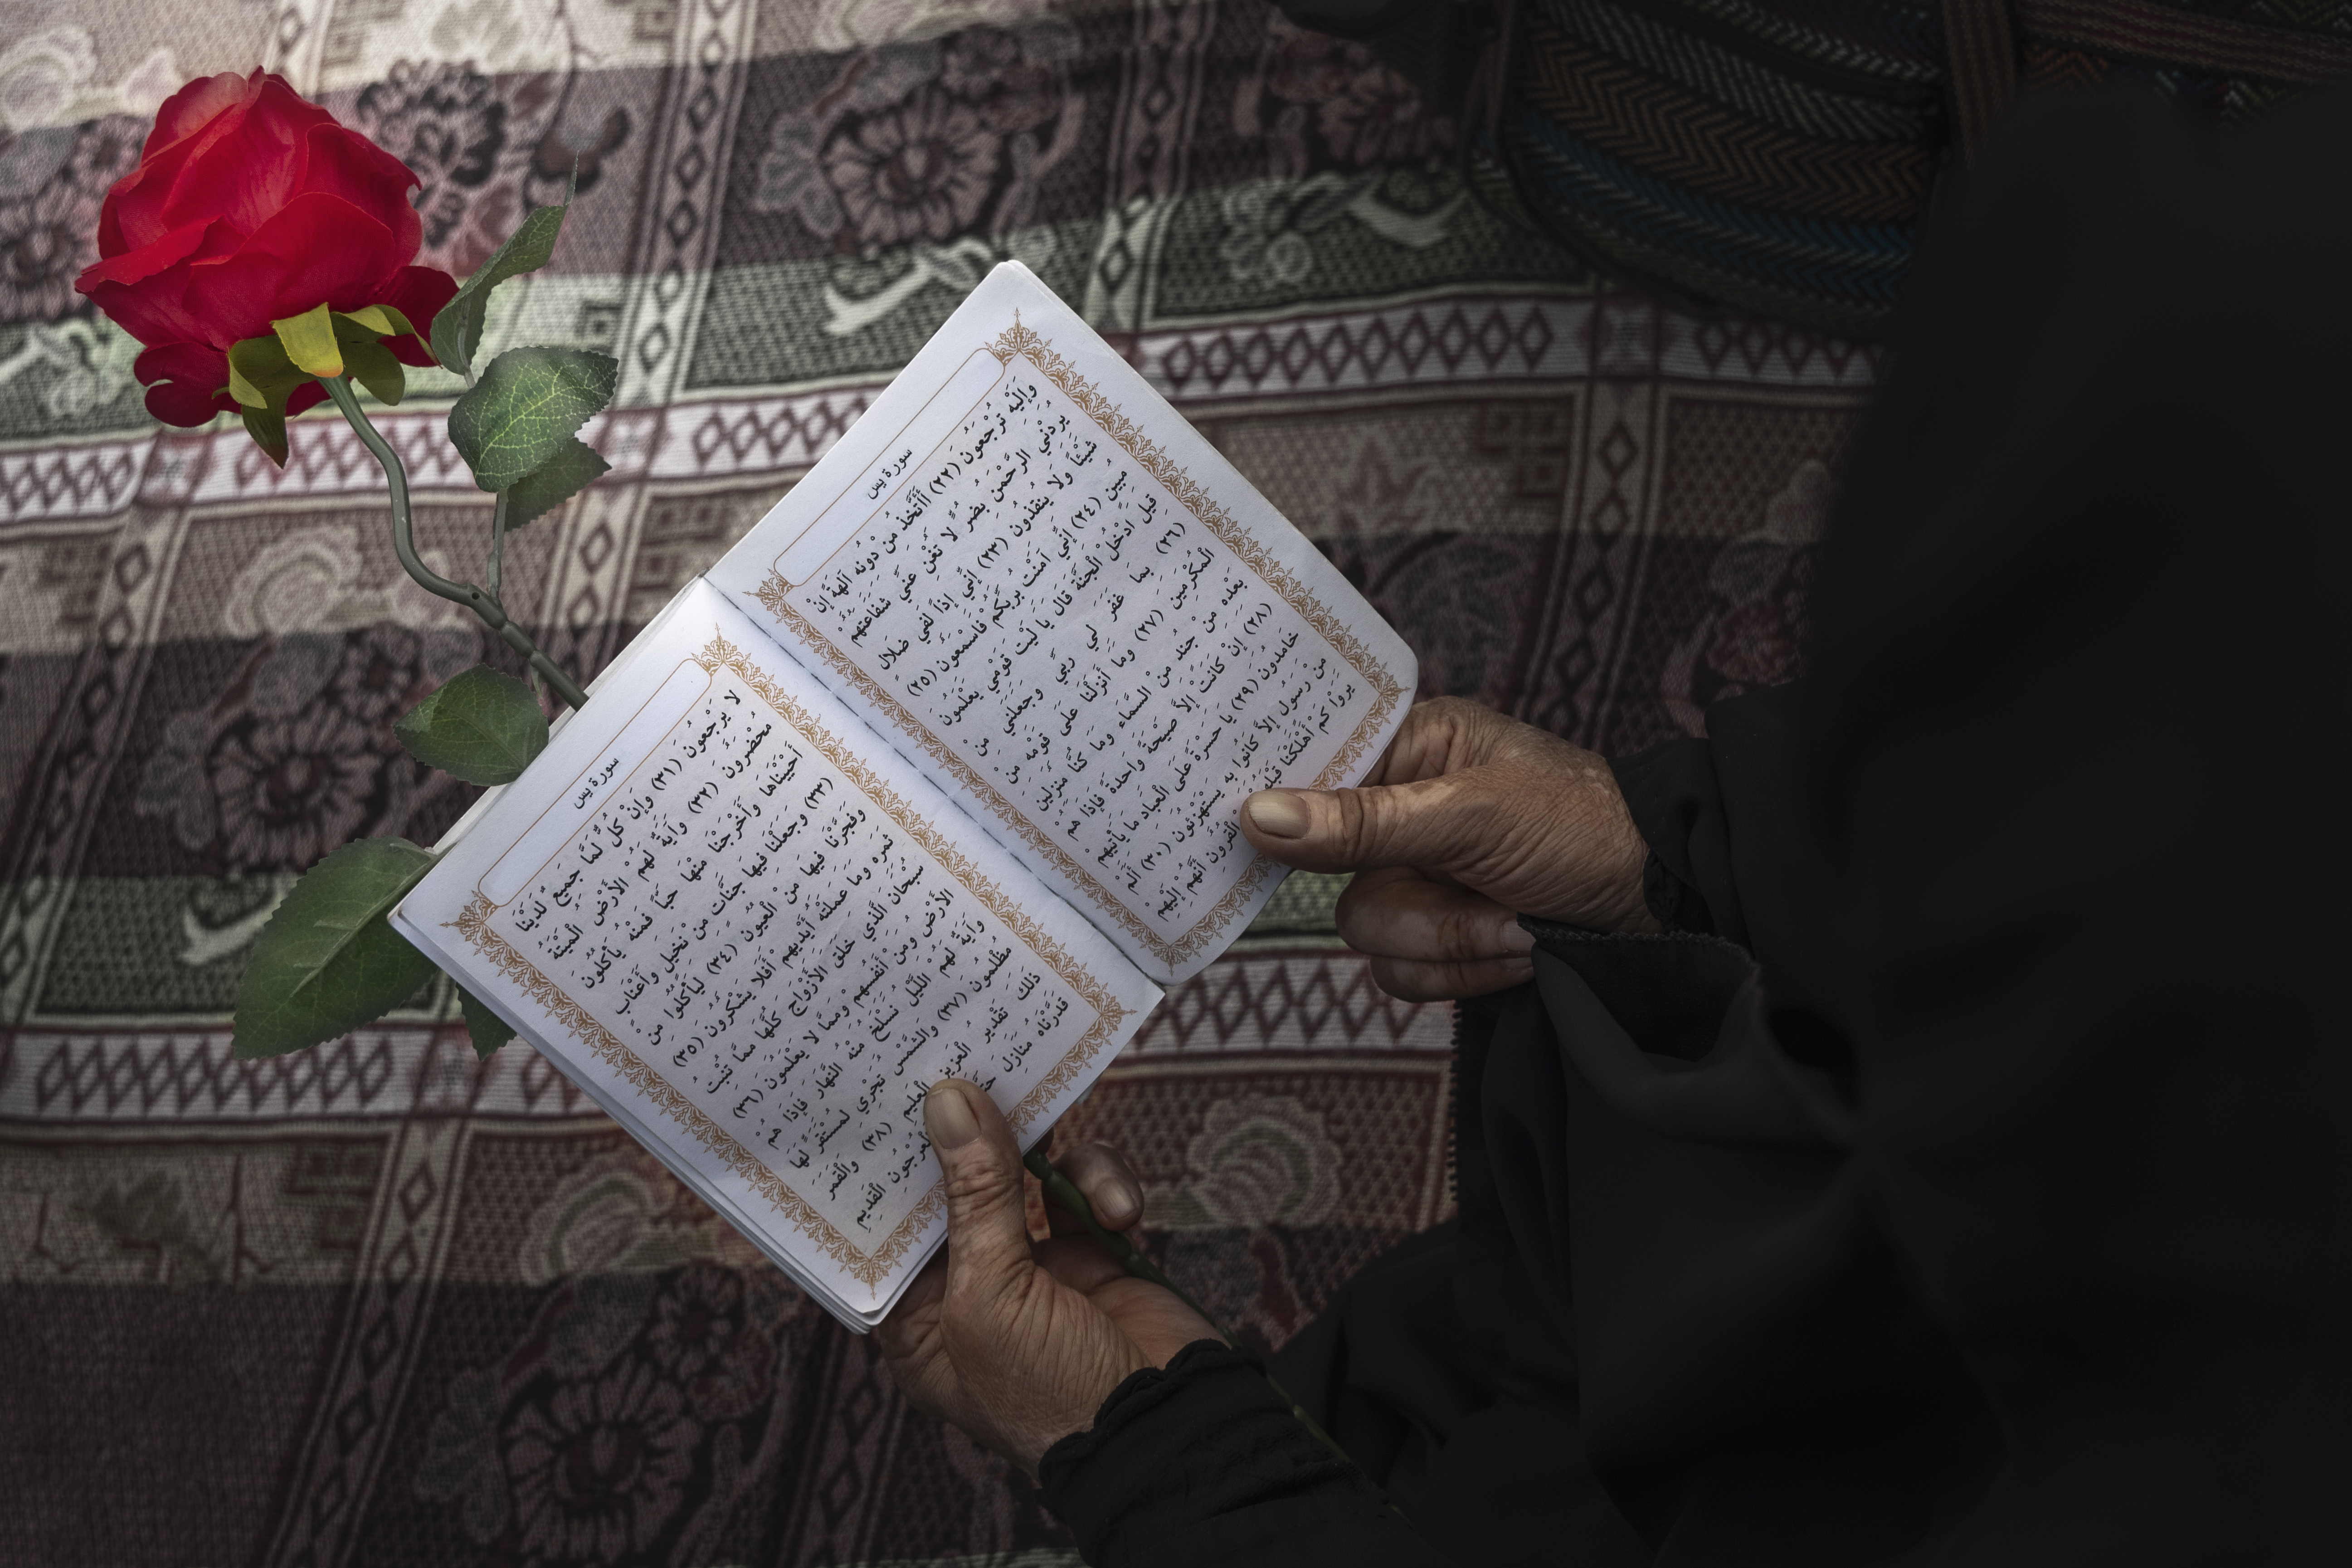 سورة يس
وَإِلَيْهِ تُرْجَعُونَ (٢٢) أَأَتَّخِذُ مِن دُونِهِ آلِهَةً إِنْ
يُرِدْنِي الرَّحْمَٰنُ بِضُرٍّ لَّا تُغْنِ عَنِّي شَفَاعَتُهُمْ
شَيْئاً وَلَا يُنقِذُونِ (٢٣) إِنِّي إِذَاً لَفِي ضَلَالٍ
مُبِينٍ (٢٤) إِنِّي آمَنْتُ بِرَبِّكُمْ فَاسْمَعُونِ (٢٥)
قِيلَ ادْخُلِ الْجَنَّةَ قَالَ يَا لَيْتَ قَوْمِي يَعْلَمُونَ
(٢٦) بِمَا غَفَرَ لِي رَبِّي وَجَعَلَنِي مِنَ
الْمُكْرَمِينَ (٢٧) وَمَا أَنزَلْنَا عَلَى قَوْمِهِ مِن
بَعْدِهِ مِنْ جُندٍ مِنَ السَّمَاءِ وَمَا كُنَّا مُنزِلِينَ
(٢٨) إِنْ كَانَتْ إِلَّا صَيْحَةً وَاحِدَةً فَإِذَا هُمْ
خَامِدُونَ (٢٩) يَا حَسْرَةً عَلَى الْعِبَادِ مَا يَأْتِيهِمْ
مِن رَسُولٍ إِلَّا كَانُوا بِهِ يَسْتَهْزِئُونَ (٣٠) أَلَمْ
يَرَوْا كَمْ أَهْلَكْنَا قَبْلَهُم الْقُرُونِ أَنَّهُمْ إِلَيْهِمْ
سورة يس
لَا يَرْجِعُونَ (٣١) وَإِنْ كُلٌّ لَّمَّا جَمِيعٌ لَّدَيْنَا
مُحْضَرُونَ (٣٢) وَآيَةٌ لَهُمُ الْأَرْضُ الْمَيْتَةُ
أَحْيَيْنَاهَا وَأَخْرَجْنَا مِنْهَا حَبّاً فَمِنْهُ يَأْكُلُونَ
(٣٣) وَجَعَلْنَا فِيهَا جَنَّاتٍ مِن نَّخِيلٍ وَأَعْنَابٍ
وَفَجَّرْنَا فِيهَا مِنَ الْعُيُونِ (٣٤) لِيَأْكُلُوا مِن
ثَمَرِهِ وَمَا عَمِلَتْهُ أَيْدِيهِمْ أَفَلَا يَشْكُرُونَ (٣٥)
سُبْحَانَ الَّذِي خَلَقَ الْأَزْوَاجَ كُلَّهَا مِمَّا تُنبِتُ
الْأَرْضُ وَمِنْ أَنفُسِهِمْ وَمِمَّا لَا يَعْلَمُونَ (٣٦)
وَآيَةٌ لَهُمُ اللَّيْلُ نَسْلَخُ مِنْهُ النَّهَارَ فَإِذَا هُمْ
مُظْلِمُونَ (٣٧) وَالشَّمْسُ تَجْرِي لِمُسْتَقَرٍّ لَهَا
ذَلِكَ تَقْدِيرُ الْعَزِيزِ الْعَلِيمِ (٣٨) وَالْقَمَرَ
قَدَّرْنَاهُ مَنَازِلَ الْقَدِيمِ